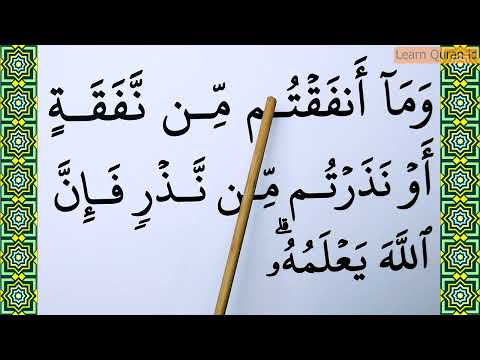 Learn Quran id
وَمَآ أَنفَقۡتُم مِّن نَّفَقَةٍ
أَوۡ نَذَرۡتُم مِّن نَّذۡرٖ فَإِنَّ
ٱللَّهَ يَعۡلَمُهُۥۗ